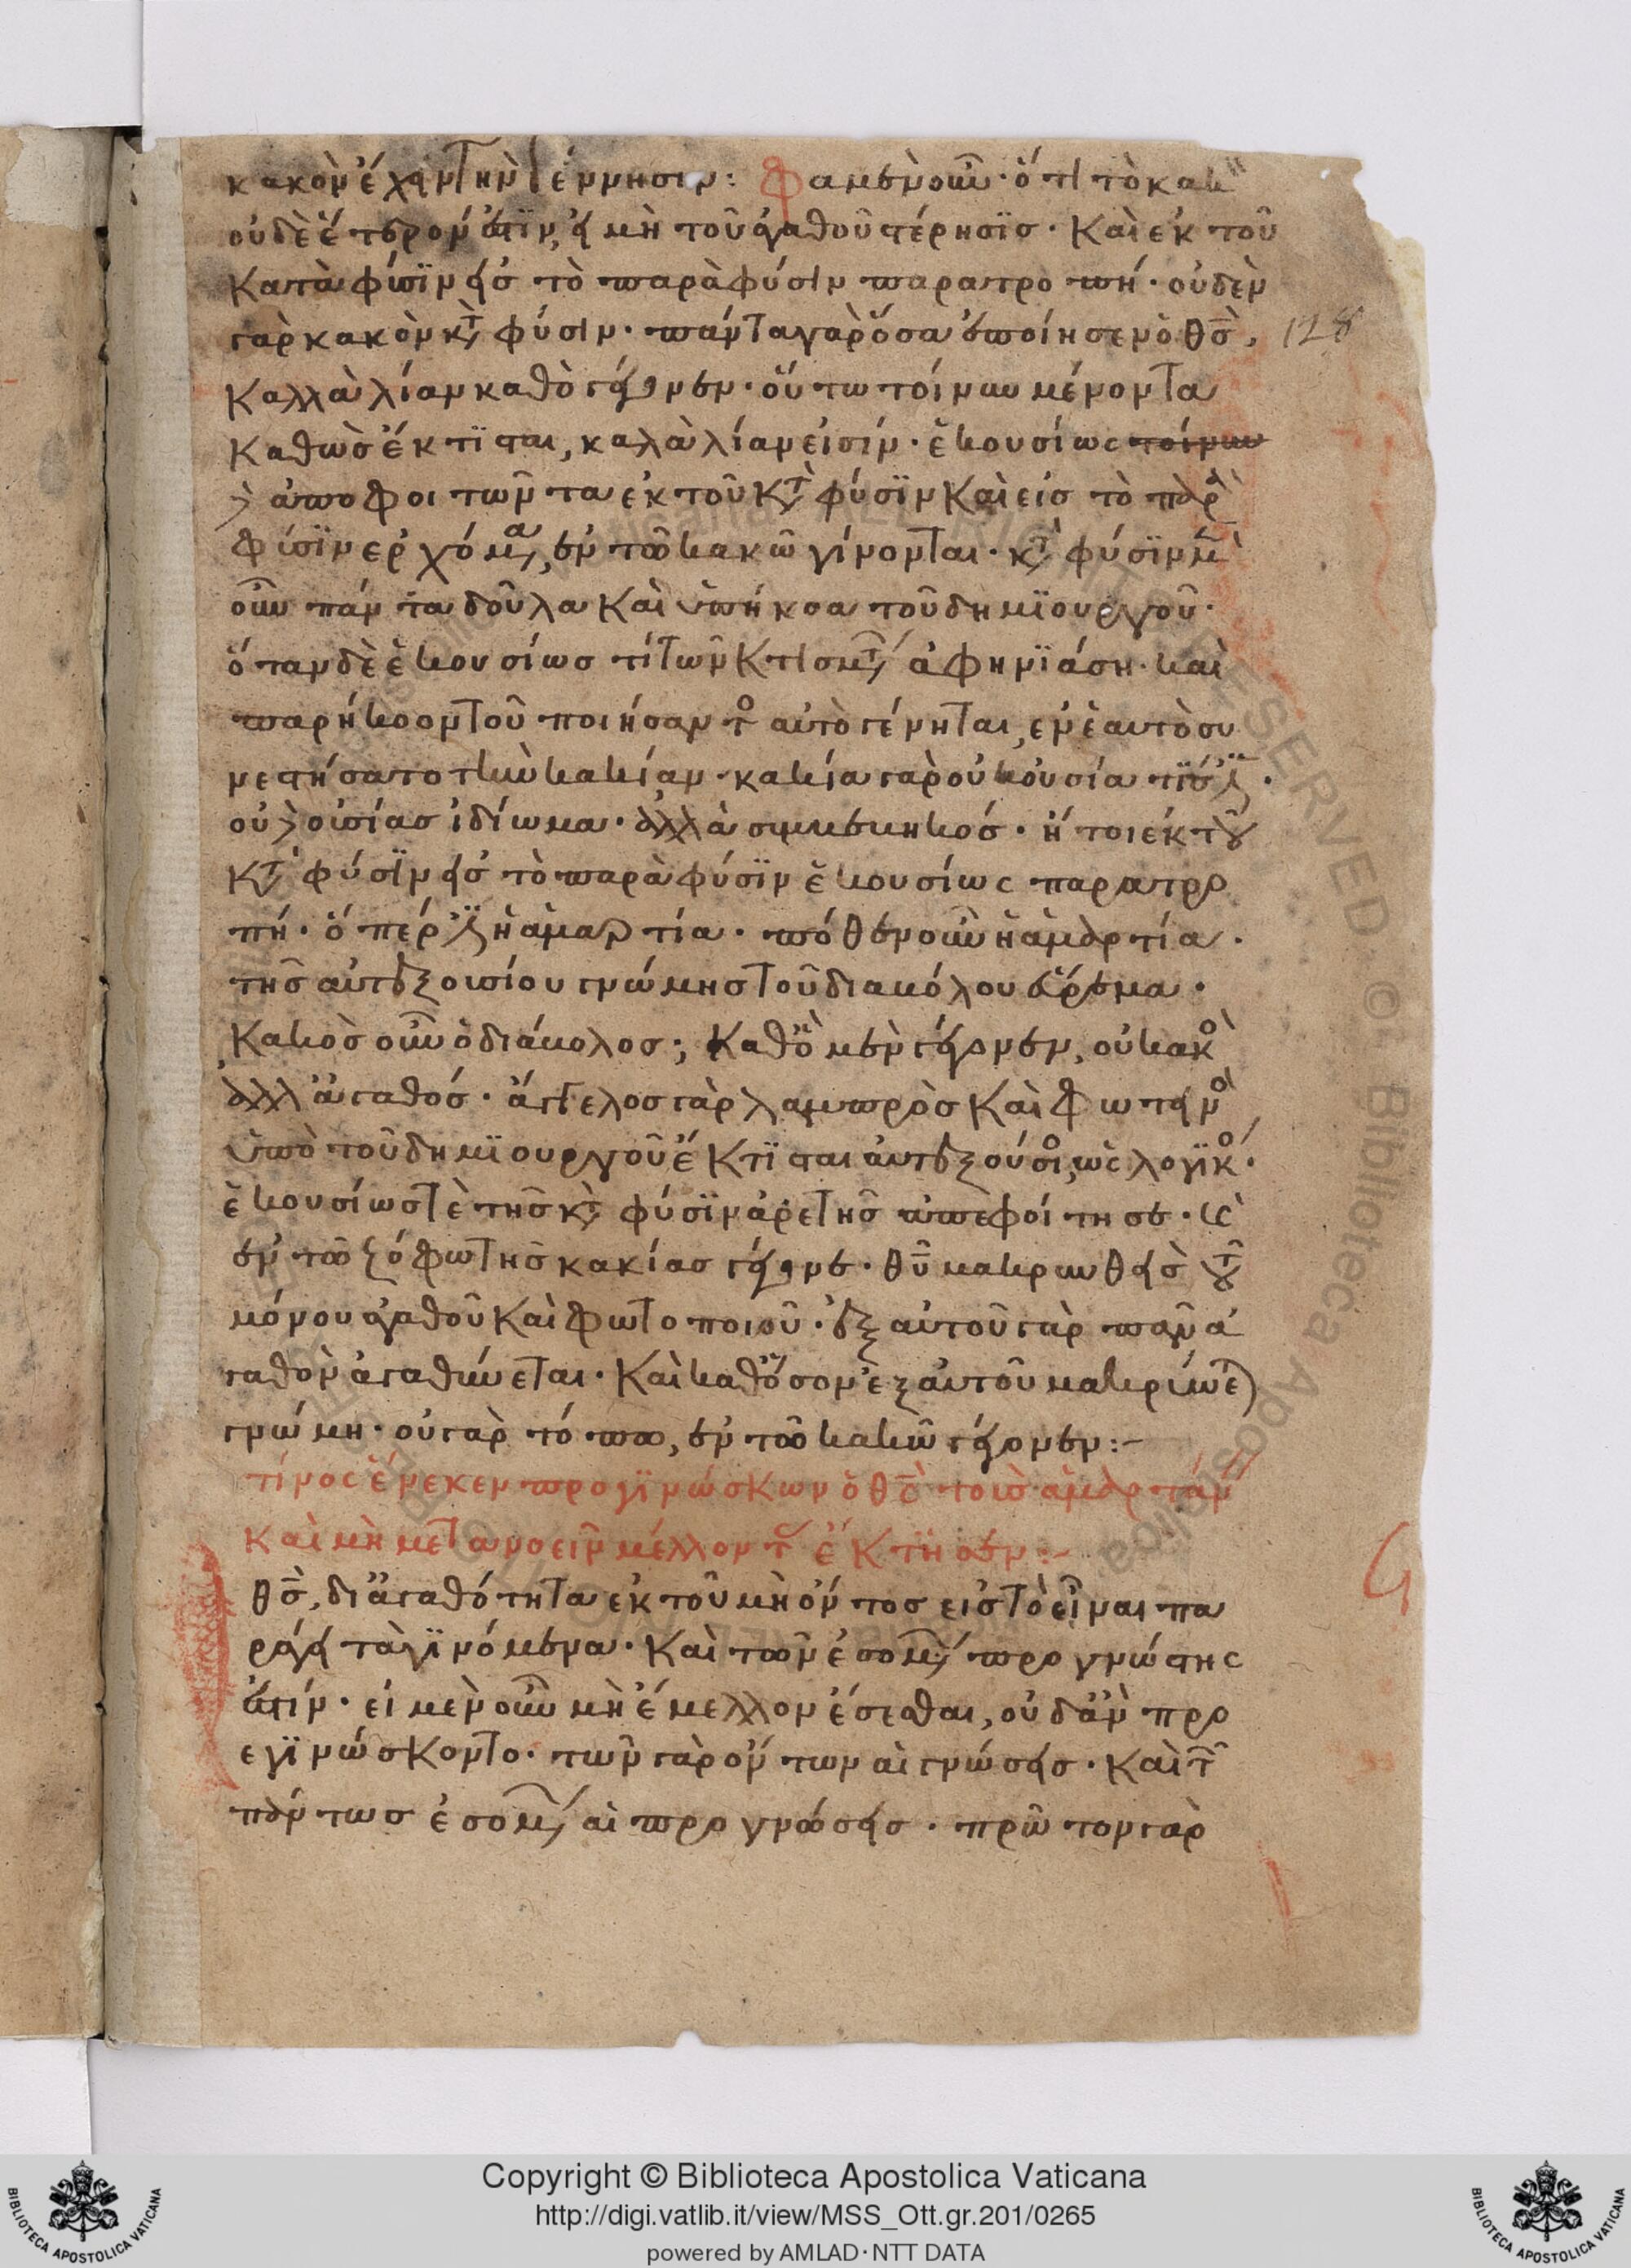 κακὸν ἔχειν τὴν γέννησιν: Φαμὲν οὖν· ὅτι τὸ κακ
οὐδὲ ἕτερόν ἐστϊν, εἰ μὴ τοῦ ἀγαθοῦ στέρησϊσ· Καὶ ἐκ τοῦ
κατὰ φύσϊν εἰσ τὸ παρὰ φύσιν παρατροπή· οὐδὲν
γὰρ κακὸν κτ φύσιν· πάντα γὰρ ὅσα ἐποίησεν ὁ θσ, 128
Καλλὰ λίαν καθὸ γέγονεν· οὕτω τοίνυν μένοντα
Καθὼσ ἔκτϊσται, καλὰ λίαν εἰσίν· ἑκουσίως τοίνυν
ἀποφοιτῶντα ἐκ τοῦ κτ φύσϊν Καὶ εἰσ τὸ παρ
φύσϊν ερχόμα, ἐν τῶ κακῶ γίνονται· κτ φύσϊν μ
οὖν πάντα δοῦλα Καὶ ὑπήκοα τοῦ δημϊουργοῦ·
ὅταν δὲ ἑκουσίωσ τὶ τῶν κτισμτ ἀφηνϊάση· καὶ
παρήκοον τοῦ ποιήσαντο αὐτὸ γένηται, εν ἑαυτὸ συ
νεστήσατο τὴν κακίαν· κακία γὰρ οὐκ οὐσία τίσ ἐστ·
οὐδ οὐσίασ ἰδίωμα· ἀλλὰ συμβεβηκόσ· ἤτοι ἐκ τοῦ
κτ φύσϊν εἰσ τὸ παρὰ φύσϊν ἑκουσίως παρατρο
πή· ὅπέρ ἐστ ἡ ἁμαρτία· πόθεν οὖν ἡ ἁμαρτία·
τῆσ αὐτεξουσίου γνώμησ τοῦ διαβόλου εὕρεμα·
Κακὸσ οὖν ὁ διάβολοσ; Καθὸ μὲν γέγονεν, οὐ κακο
ἀλλ ἀγαθόσ· ἄγγελοσ γὰρ λαμπρὸσ Καὶ Φωτεινο
ὑπὸ τοῦ δημϊουργοῦ ἔκτϊσται αὐτεξούσιο, ὡς λογϊκο·
ἑκουσίωσ τὲ τῆσ κτ φύσϊν ἀρετῆσ ἀπεφοίτησε· κὲ
ἐν τῶ ζόφω τῆσ κακίασ γέγονε· θυ μακρυνθεὶσ τοῦ
μόνου ἀγαθοῦ Καὶ Φωτοποιοῦ· ἐξ αὐτοῦ γὰρ πᾶν ἀ
γαθὸν ἀγαθύνεται· Καὶ καθὅσον ἐξ αὐτοῦ μακρύνε
γνώμη· οὐ γὰρ τόπω, ἐν τῶ κακῶ γέγονεν:–
τίνος ἕνεκεν προγϊνώσκων ὁ θς τοὺσ ἁμαρτάν
Καὶ μὴ μετανοεῖν μέλλοντ ἔκτϊσεν:–
θσ, δι ἀγαθότητα ἐκ τοῦ μὴ ὄντοσ εἰσ τὸ εἶναι πα
ράγει τὰ γϊνόμενα· Καὶ τῶν ἐσομ προγνώστης
ἐστίν· εἰ μὲν οὖν μὴ ἔμελλον ἔσεσθαι, οὐδἂν προ
εγϊνώσκοντο· τῶν γὰρ ὄντων αἱ γνώσεισ· Καὶ τ
πάντωσ ἐσομ αἱ προγνώσεισ· πρῶτον γὰρ
Copyright © Biblioteca Apostolica Vaticana
http://digi.vatlib.it/view/MSS_Ott.gr.201/0265
powered by AMLAD·NTT DATA